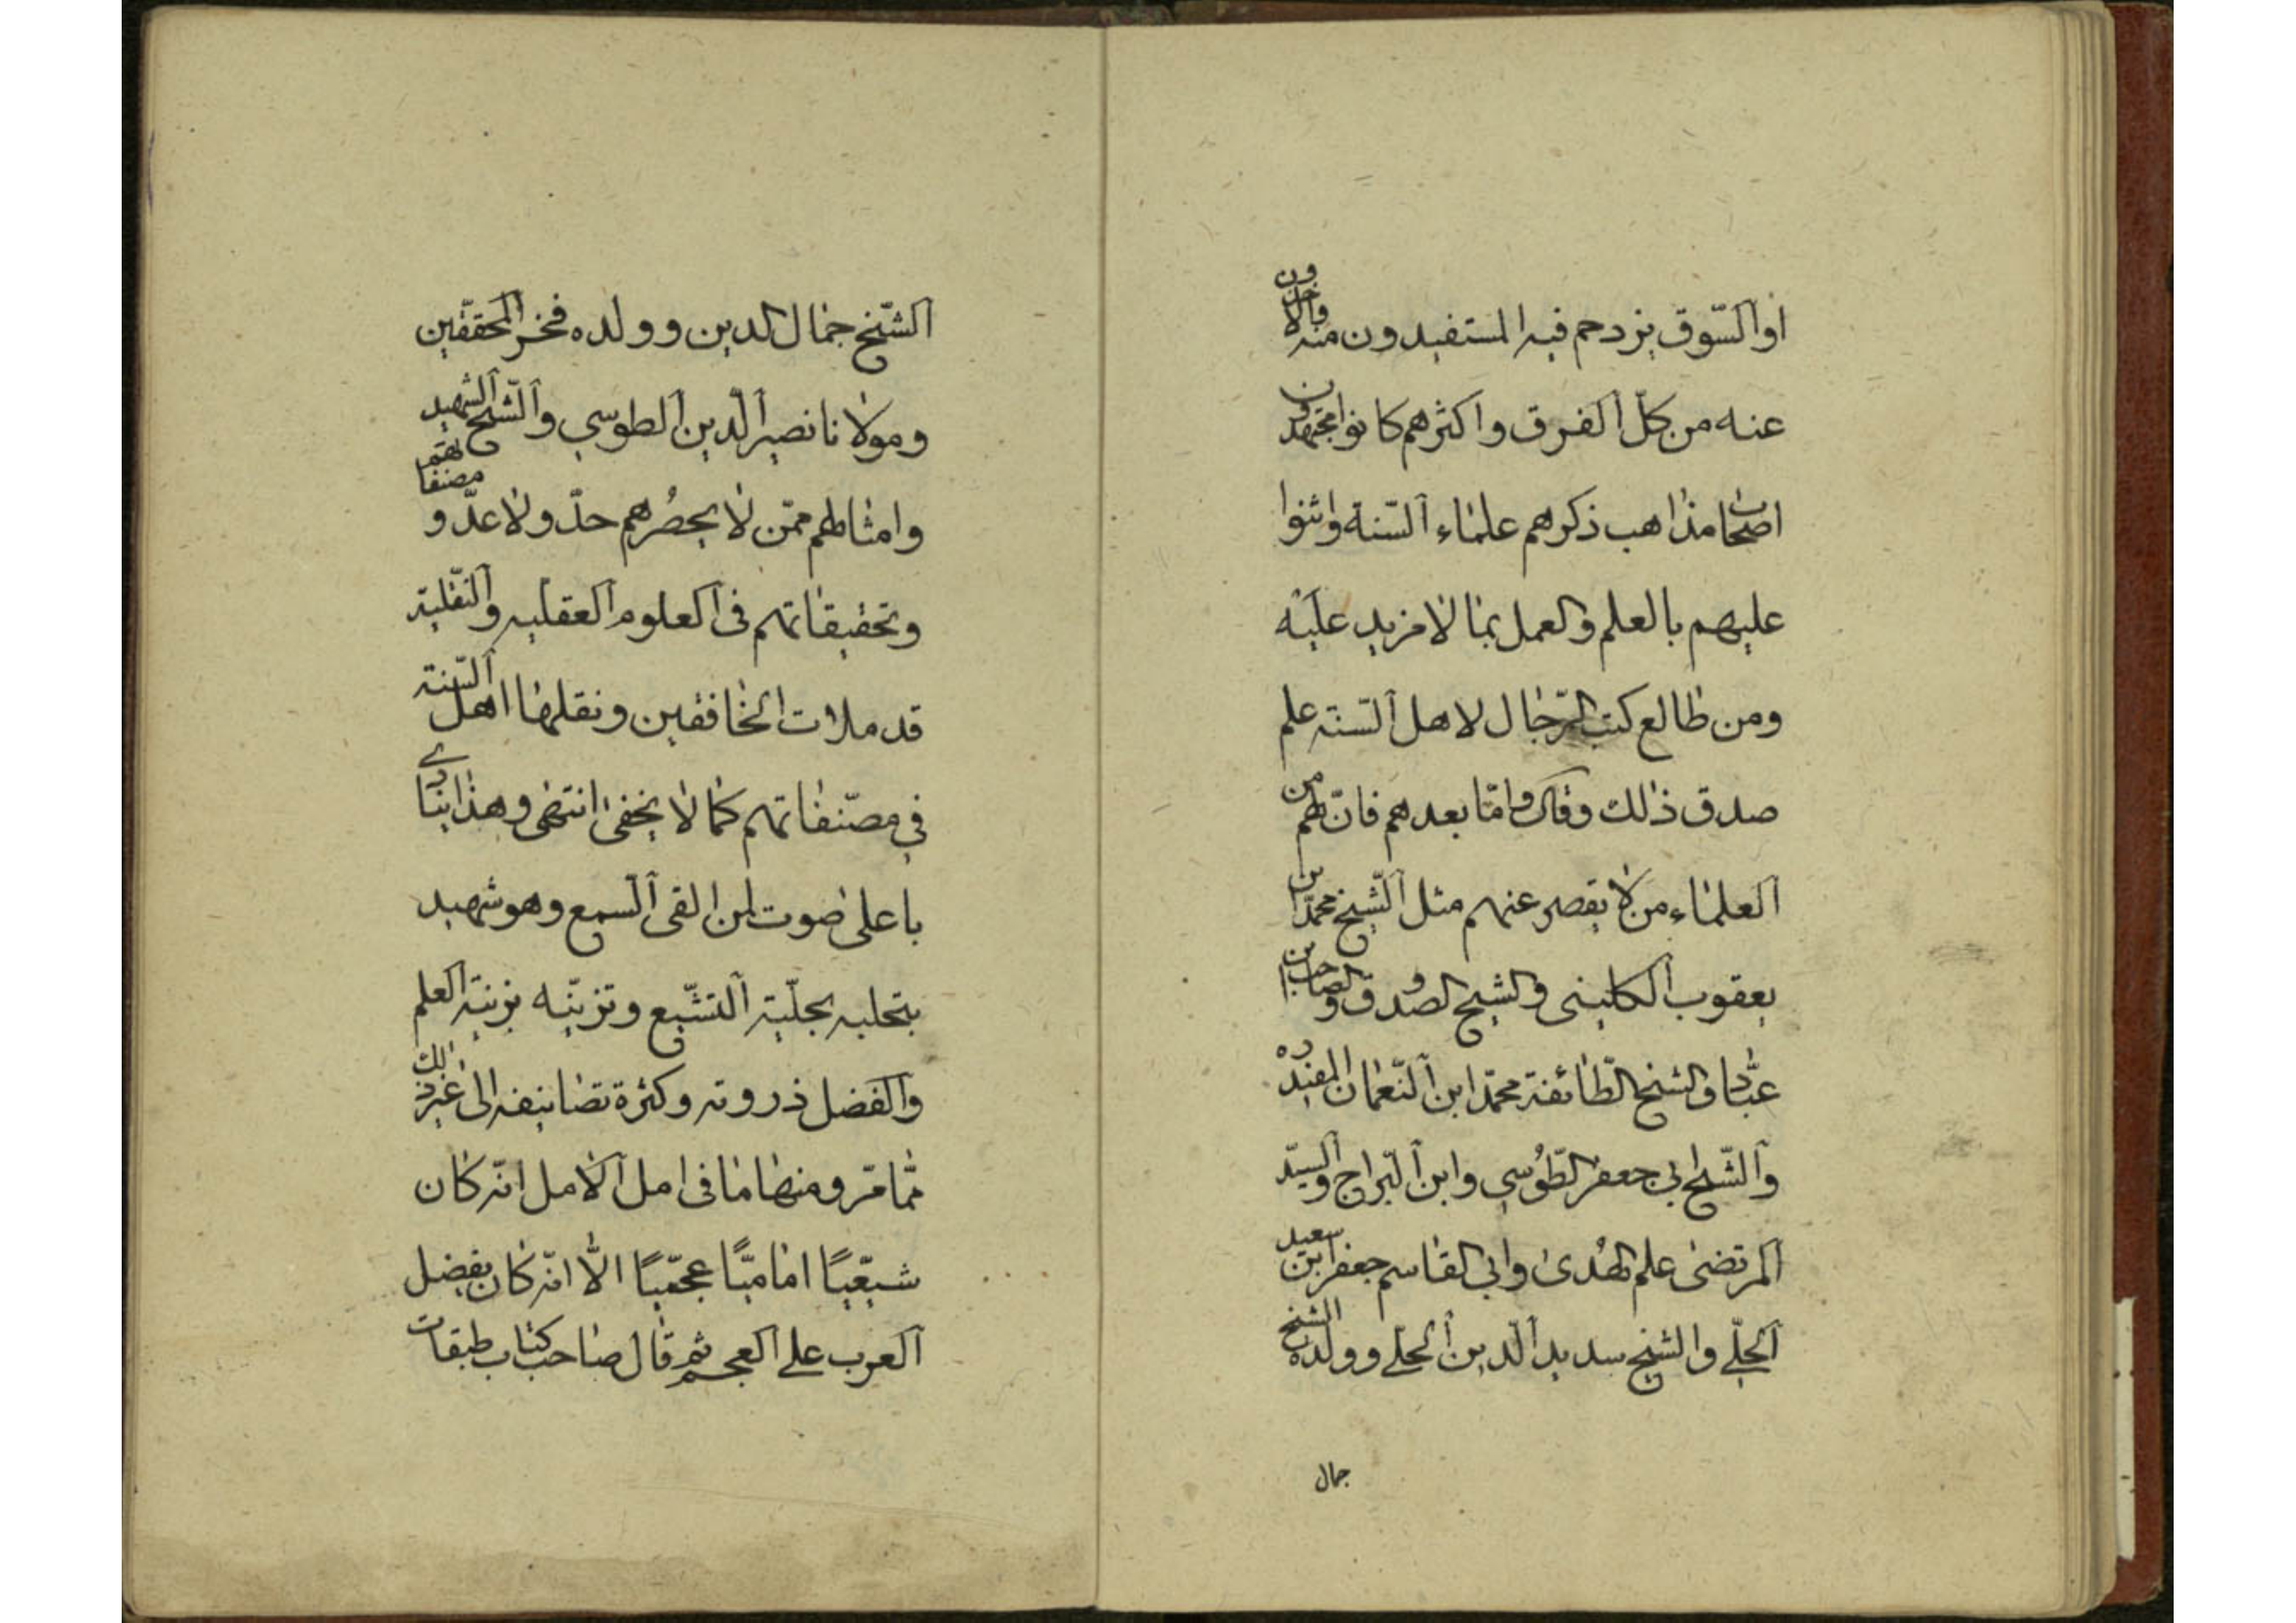 او السّوق يزدحم فيه المستفيدون منه والاخذون
عنه من كلّ الفرق واكثرهم كانوا مجتهدون
اصحاب مذاهب ذكرهم علماء السّنة واثنوا
عليهم بالعلم والعمل بما لا مزيد عليه
ومن طالع كتب الرّجال لاهل السّنة علم
صدق ذلك وقال وامّا بعدهم فانّ لهم من
العلماء من لا يقصر عنهم مثل الشّيخ محمّد بن
يعقوب الكليني والشيخ الصدوق والصاحب بن
عبّاد والشيخ الطّائفة محمّد ابن النّعمان المفيد ره
والشّيخ ابي جعفر الطّوُسي وابن البّراج والسيّد
المرتضى علم الهُدى وابي القاسم جعفر ابن سعيد
الحلّي والشيخ سديد الّدين الحلّي وولده الشيخ
جمال
الشّيخ جمال الدين وولده فخر المحقّقين
ومولانا نصير الّدين الطوسي والشّيخ الشهيد
وامثالهم ممّن لا يحصُرهم حدّ ولا عدّ و مصنفاتهم
وتحقيقاتهم في العلوم العقليه والنّقلية
قد ملات الخافقين ونقلها اهل السّنة
في مصنّفاتهم كما لا يخفى انتهى وهذا ينادي
باعلى صوت لمن القى السّمع وهو شهيد
بتحليه بحلّية التشّيع وتزيّنه بزينة العلم
والفضل ذروته وكثرة تصانيفه الى غير ذلك
ممّا مرّ ومنها ما في امل الامل انّه كان
شيعّيًا اماميًّا عجمّيًا الّا انّه كان يفضل
العرب على العجم ثم قال صاحب كتاب طبقات